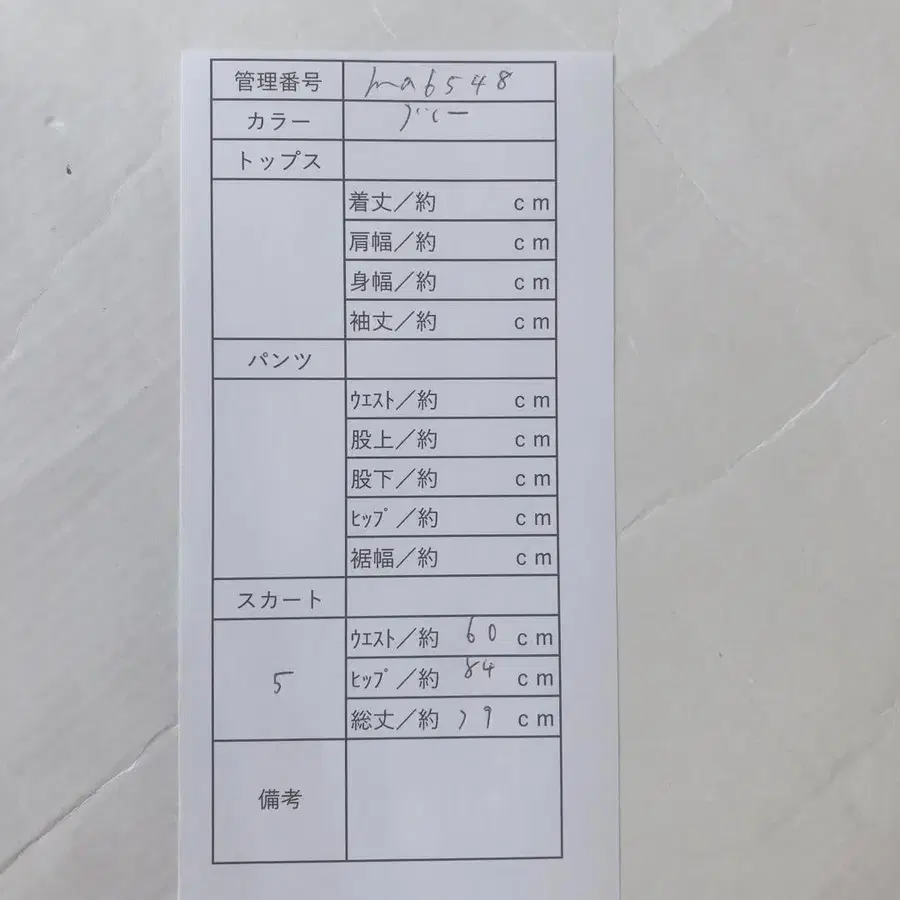 管理番号 ma6548
カラー
トップス
着丈／約 cm
肩幅／約 cm
身幅／約 cm
袖丈／約 cm
パンツ
ｳｴｽﾄ／約 cm
股上／約 cm
股下／約 cm
ﾋｯﾌﾟ／約 cm
裾幅／約 cm
スカート
5
ｳｴｽﾄ／約 60 cm
ﾋｯﾌﾟ／約 84 cm
総丈／約 cm
備考